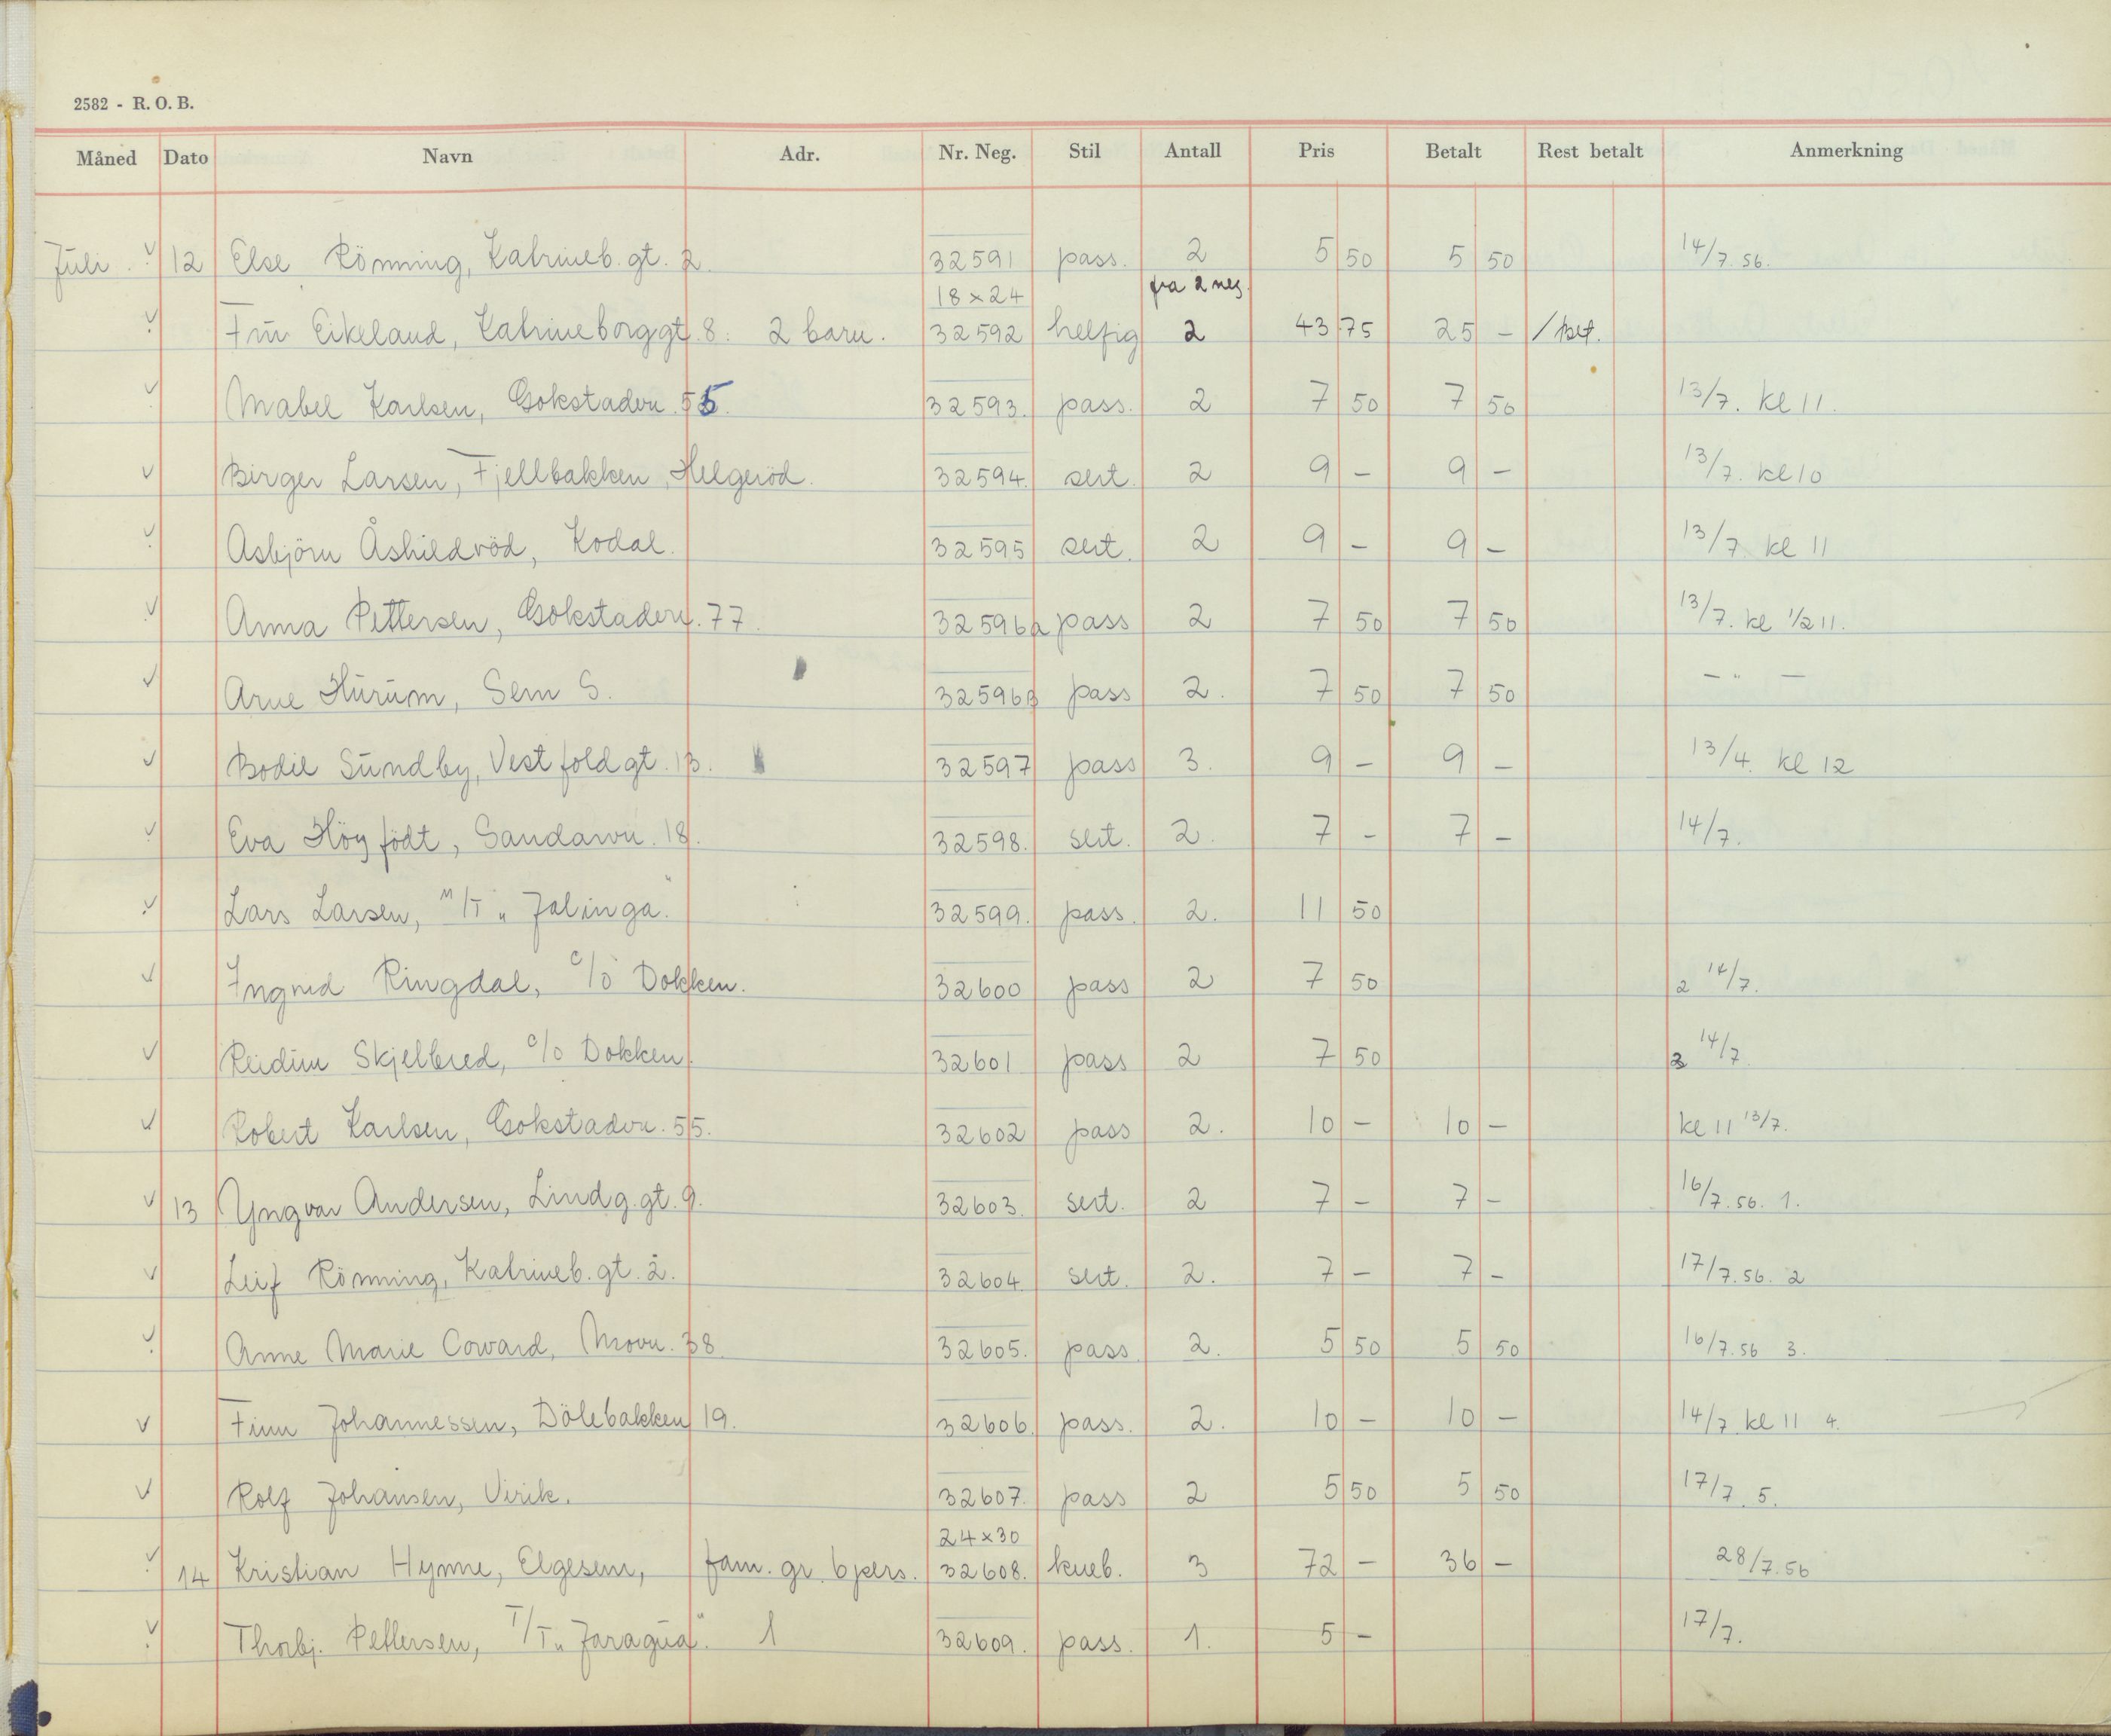 2582 - R. O. B.
Måned Dato Navn Adr. Nr. Neg. Stil Antall Pris Betalt Rest betalt Anmerkning
Juli. 12 Else Rönning, Katrineb. gt. 2. 32591 pass. 2 5 50 5 50 14/7.56.
18 x 24 fra 2 neg.
Fru Eikeland, Katrineborggt. 8. 2 barn. 32592 helfig 2 43 75 25 - / Bet.
Mabel Karlsen, Gokstadvn. 55. 32593. pass. 2 7 50 7 50 13/7. kl 11.
Birger Larsen, Fjellbakken, Helgeröd. 32594. sert. 2 9 - 9 - 13/7. kl 10
Asbjörn Åshildröd, Kodal. 32595 sert. 2 9 - 9 - 13/7 kl 11
Anna Pettersen, Gokstadvn. 77. 32596a pass 2 7 50 7 50 13/7. kl 1/2 11.
Arne Hurum, Sem S. 32596B pass 2. 7 50 7 50 - " -
Bodil Sundby, Vestfoldgt. 13. 32597 pass 3. 9 - 9 - 13/4. kl 12
Eva Högfödt, Sandarvn. 18. 32598. sert. 2. 7 - 7 - 14/7.
Lars Larsen, M/T „Jalinga". 32599. pass. 2. 11 50
Ingrid Ringdal, c/o Dokken. 32600 pass 2 7 50 2 14/7.
Reidun Skjelbred, c/o Dokken. 32601 pass 2 7 50 14/7
Robert Karlsen, Gokstadvn. 55. 32602 pass 2. 10 - 10 - kl 11 13/7.
13 Yngvar Andersen, Lindg. gt. 9. 32603. sert. 2 7 - 7 - 16/7.56. 1.
Leif Rönning, Katrineb. gt. 2. 32604. sert. 2. 7 - 7 - 17/7.56. 2
Anne Marie Coward, Movn. 38. 32605. pass 2. 5 50 5 50 16/7.56 3.
Finn Johannessen, Dölebakken 19. 32606. pass. 2. 10 - 10 - 14/7. kl 11 4.
Rolf Johansen, Virik. 32607. pass 2 5 50 5 50 17/7. 5.
24 x 30
14 Kristian Hymne, Elgesem, fam. gr. 6 pers. 32608. kneb. 3 72 - 36 - 28/7.56
Thorbj. Pettersen, T/T „Jaragua". 1 32609. pass. 1. 5 - 17/7.